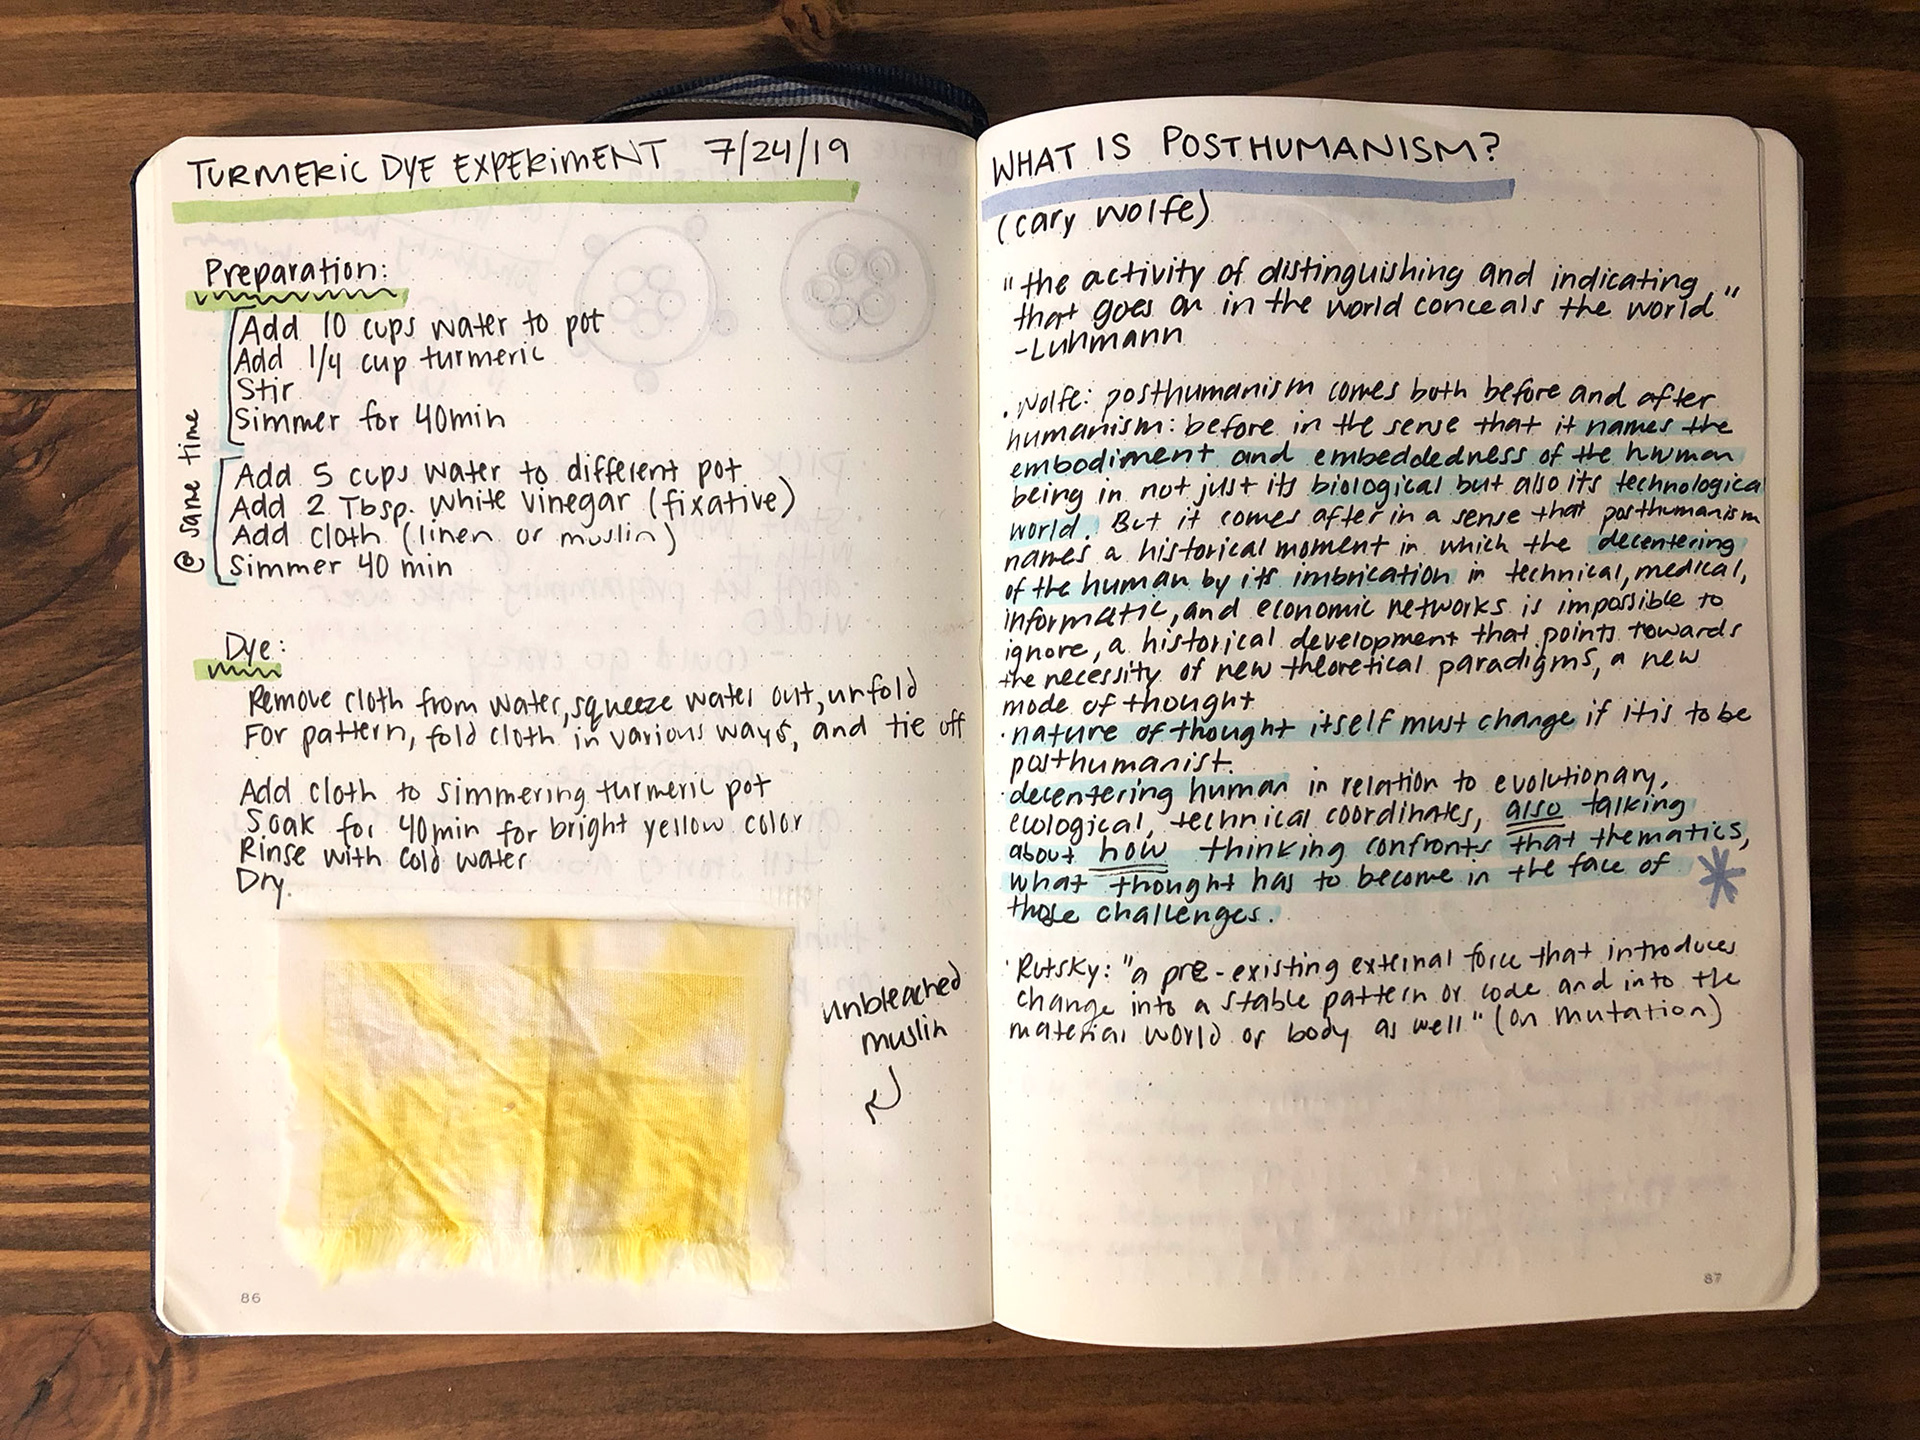 TURMERIC DYE EXPERIMENT 7/24/19
Preparation:
Add 10 cups water to pot
Add 1/4 cup turmeric
Stir
Simmer for 40min
@ same time
Add 5 cups water to different pot
Add 2 Tbsp. white vinegar (fixative)
Add cloth (linen or muslin)
Simmer 40 min
Dye:
Remove cloth from water, squeeze water out, unfold
For pattern, fold cloth in various ways, and tie off
Add cloth to simmering turmeric pot
Soak for 40min for bright yellow color
Rinse with cold water
Dry.
unbleached
muslin
86
WHAT IS POSTHUMANISM?
(cary wolfe)
"the activity of distinguishing and indicating
that goes on in the world conceals the world,"
-Luhmann
• Wolfe: posthumanism comes both before and after
humanism: before in the sense that it names the
embodiment and embeddedness of the human
being in not just its biological but also its technological
world. But it comes after in a sense that posthumanism
names a historical moment in which the decentering
of the human by its imbrication in technical, medical,
informatic, and economic networks is impossible to
ignore, a historical development that points towards
the necessity of new theoretical paradigms, a new
mode of thought
• nature of thought itself must change if it is to be
posthumanist.
decentering human in relation to evolutionary,
ecological, technical coordinates, also talking
about how thinking confronts that thematics,
what thought has to become in the face of
those challenges.
• Rutsky: "a pre-existing external force that introduces
change into a stable pattern or code and into the
material world or body as well" (on mutation)
87